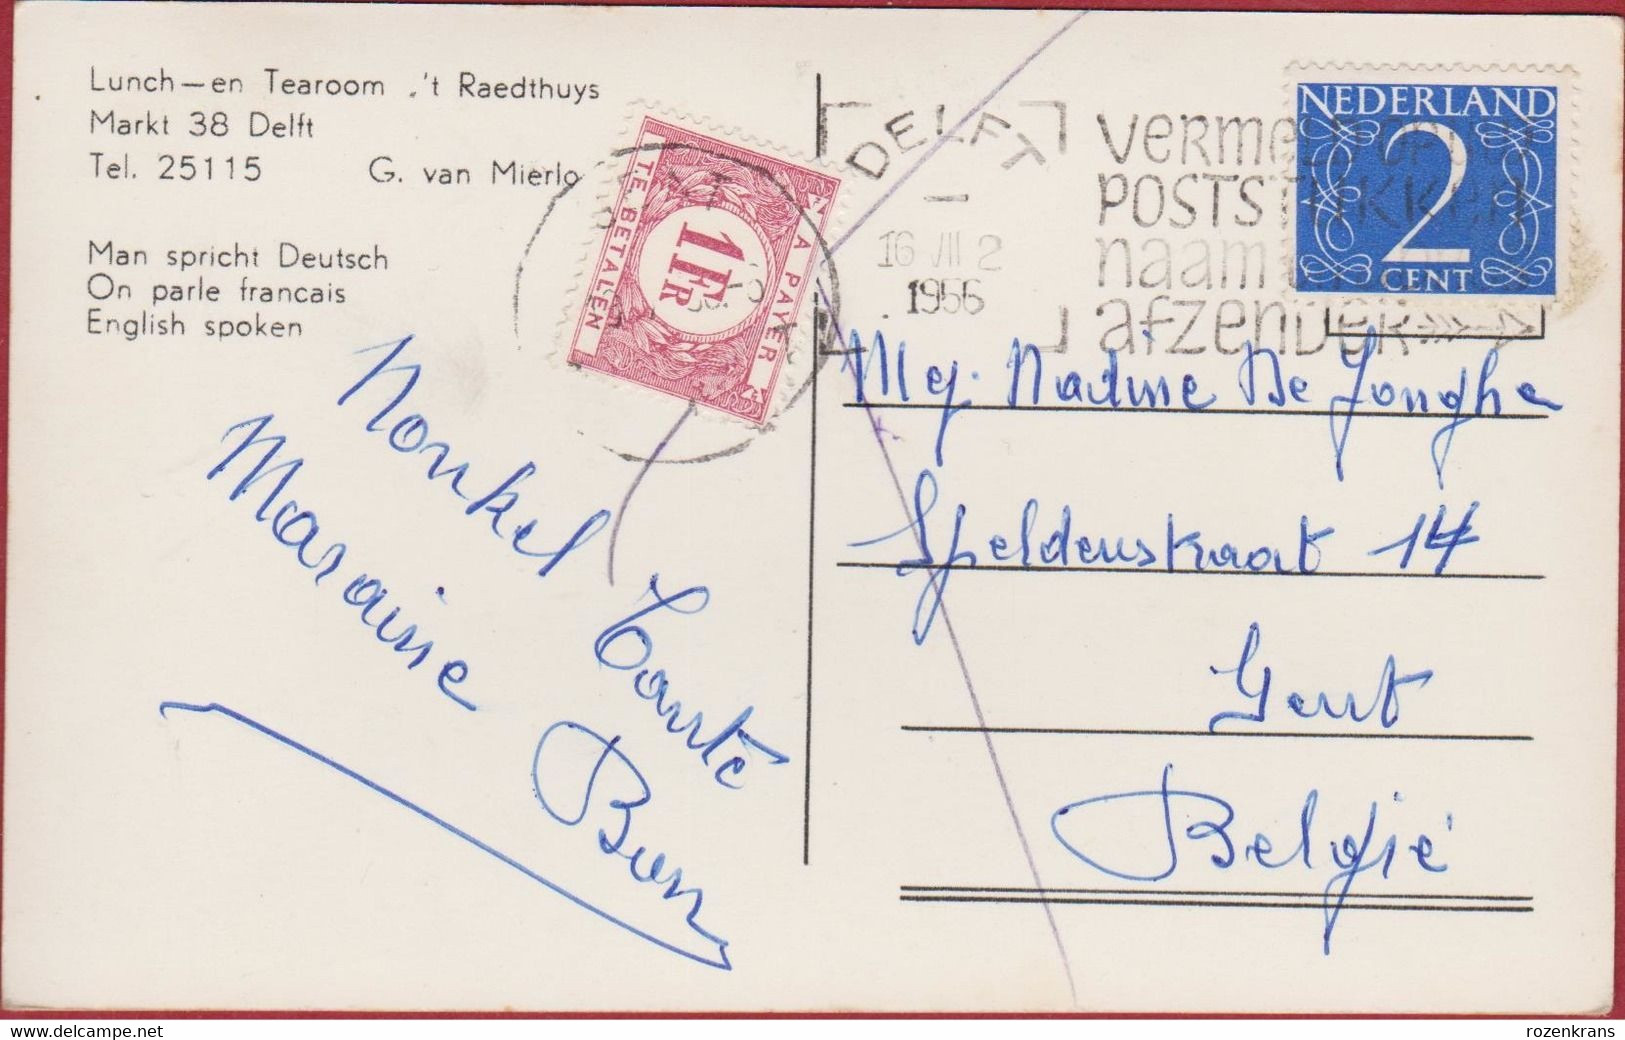 Lunch—en Tearoom 't Raedthuys
Markt 38 Delft
Tel. 25115 G. van Mierlo
Man spricht Deutsch
On parle francais
English spoken
A PAYER
1 FR
T.E. BETALEN
GENT
DELFT
16 VII 2
1956
VERMELD OP UW
POSTSTUKKEN
naam
afzender
NEDERLAND
2
CENT
Mej. Nadine De Jonghe
Speldenstraat 14
Gent
België
Nonkel Tante
Maraine Bon
www.delcampe.net
rozenkrans